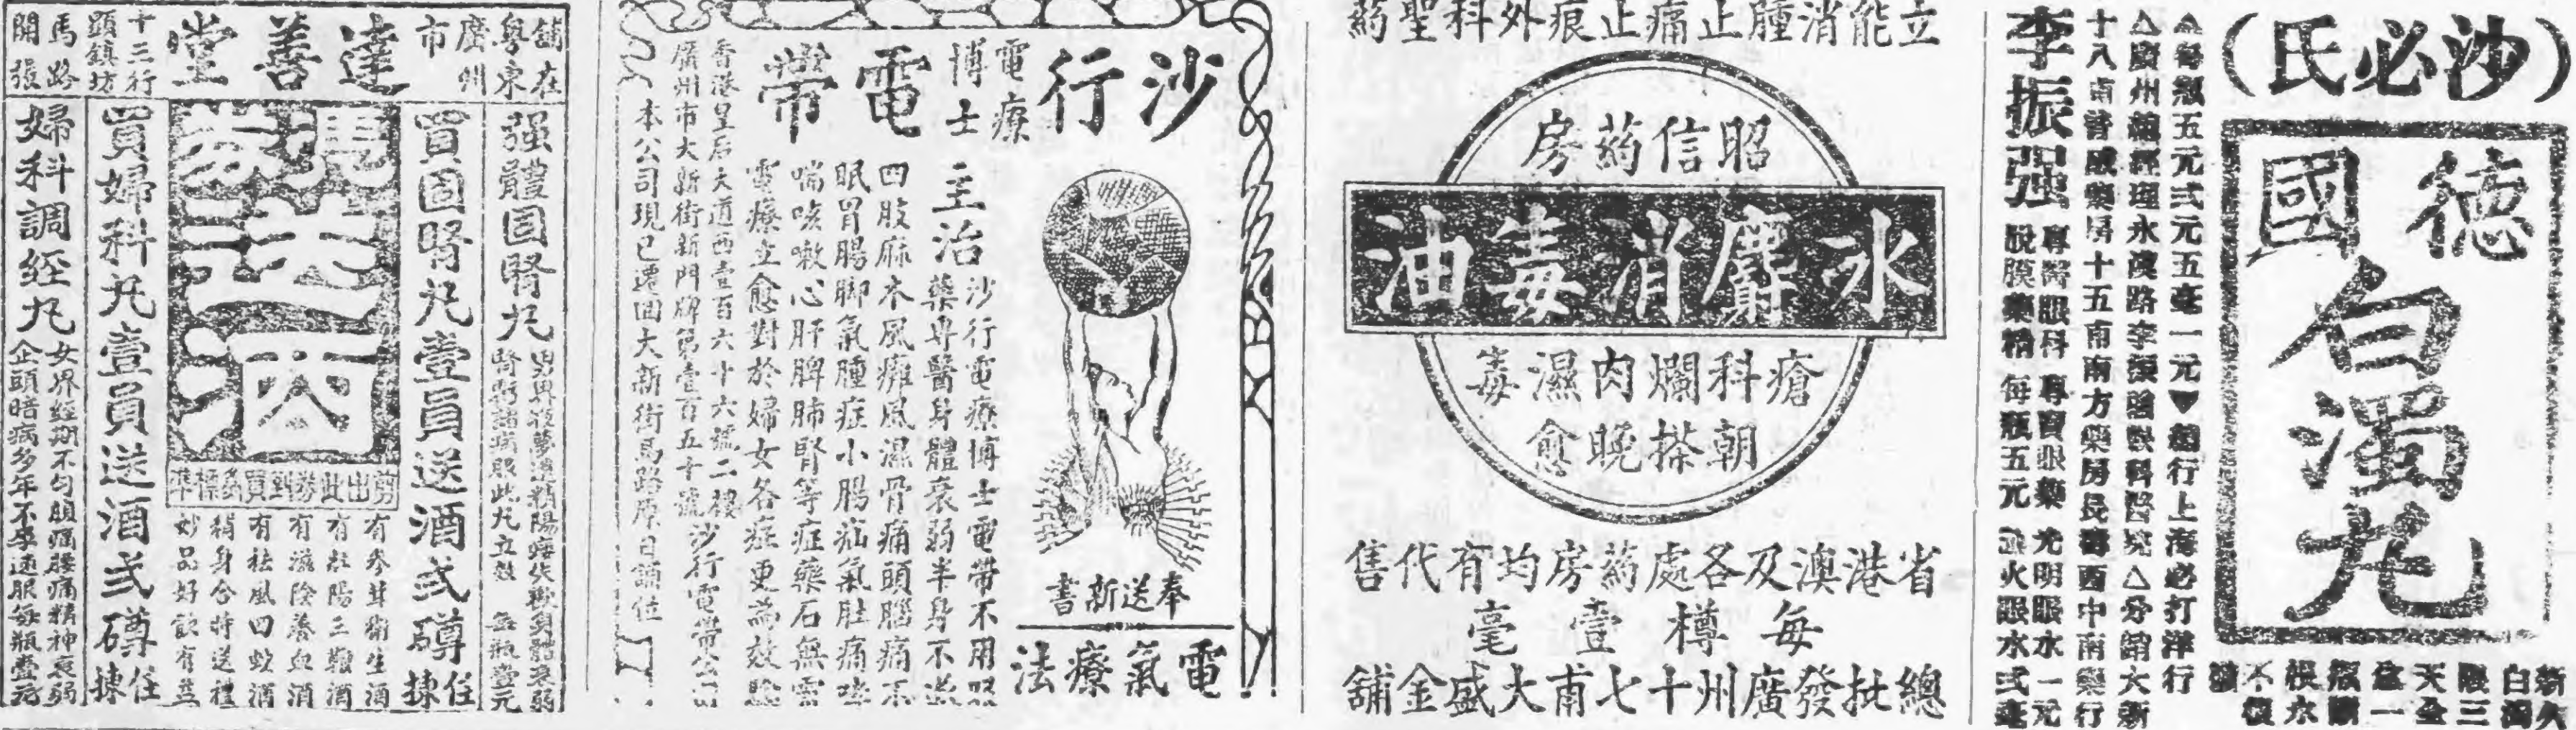 （沙必氏）
德國
白濁丸
新久
白濁
服三
天全
愈一
瓶斷
根永
不復
發
每瓶五元弍元五毫一元▼總行上海必打洋行
十八甫普威藥房十五甫南方藥房長壽西中南藥行
李振强
專醫眼科 專賣眼藥 光明眼水一元
脫膜藥精 每瓶五元 火眼水弍毫
立能消腫止痛止痕外科聖葯
昭信葯房
冰麝消毒油
瘡科爛肉濕毒
朝搽晚愈
省港澳及各處葯房均有代售
每樽壹毫
總批發廣州十七甫大盛金舖
沙行
電療
博士
電帶
奉送新書
電氣療法
主治
沙行電療博士電帶不用服
藥專醫身體衰弱半身不遂
四肢麻木風癱風濕骨痛頭腦痛不
眠胃腸脚氣腫症小腸疝氣肚痛咳
喘咳嗽心肝脾肺腎等症藥石無靈
電療立愈對於婦女各症更為效驗
香港皇后大道西壹百六十六號二樓
廣州市大新街新門牌第壹百五十號
沙行電帶公司
本公司現已遷回大新街馬路原日舖位
舖在
粵東
廣州
市
達善堂
十三行
頭鎮坊
馬路
開張
强體固腎丸
男界發夢遺精陽痿失救身體衰弱
腎虧諸病服此丸立效 每瓶壹元
買固腎丸壹員送酒弍礴
任
揀
剪出此券到買為標準
有參茸衛生酒
有壯陽三鞭酒
有滋陰養血酒
有祛風四蛟酒
稱身合時送禮
妙品好飲有益
買婦科丸壹員送酒弍礴
任
揀
婦科調經丸
女界經期不匀頭痛腰痛精神衰弱
企頭暗病多年不孕速服每瓶壹元